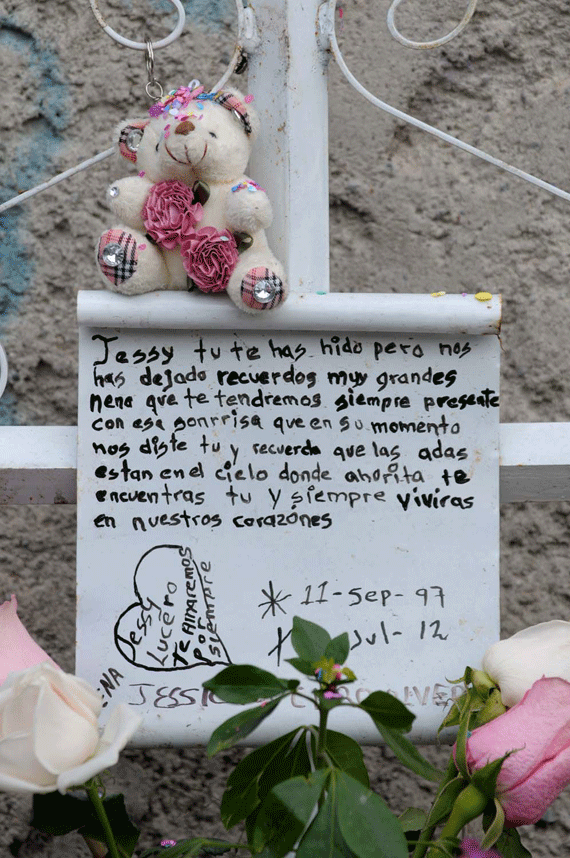 Jessy tu te has hido pero nos
has dejado recuerdos muy grandes
nena que te tendremos siempre presente
con esa sonrrisa que en su momento
nos diste tu y recuerda que las adas
estan en el cielo donde ahorita te
encuentras tu y siempre viviras
en nuestros corazónes
Jessy
Lucero
Te Amaremos
Por
siempre
* 11-Sep-97
Jul-12